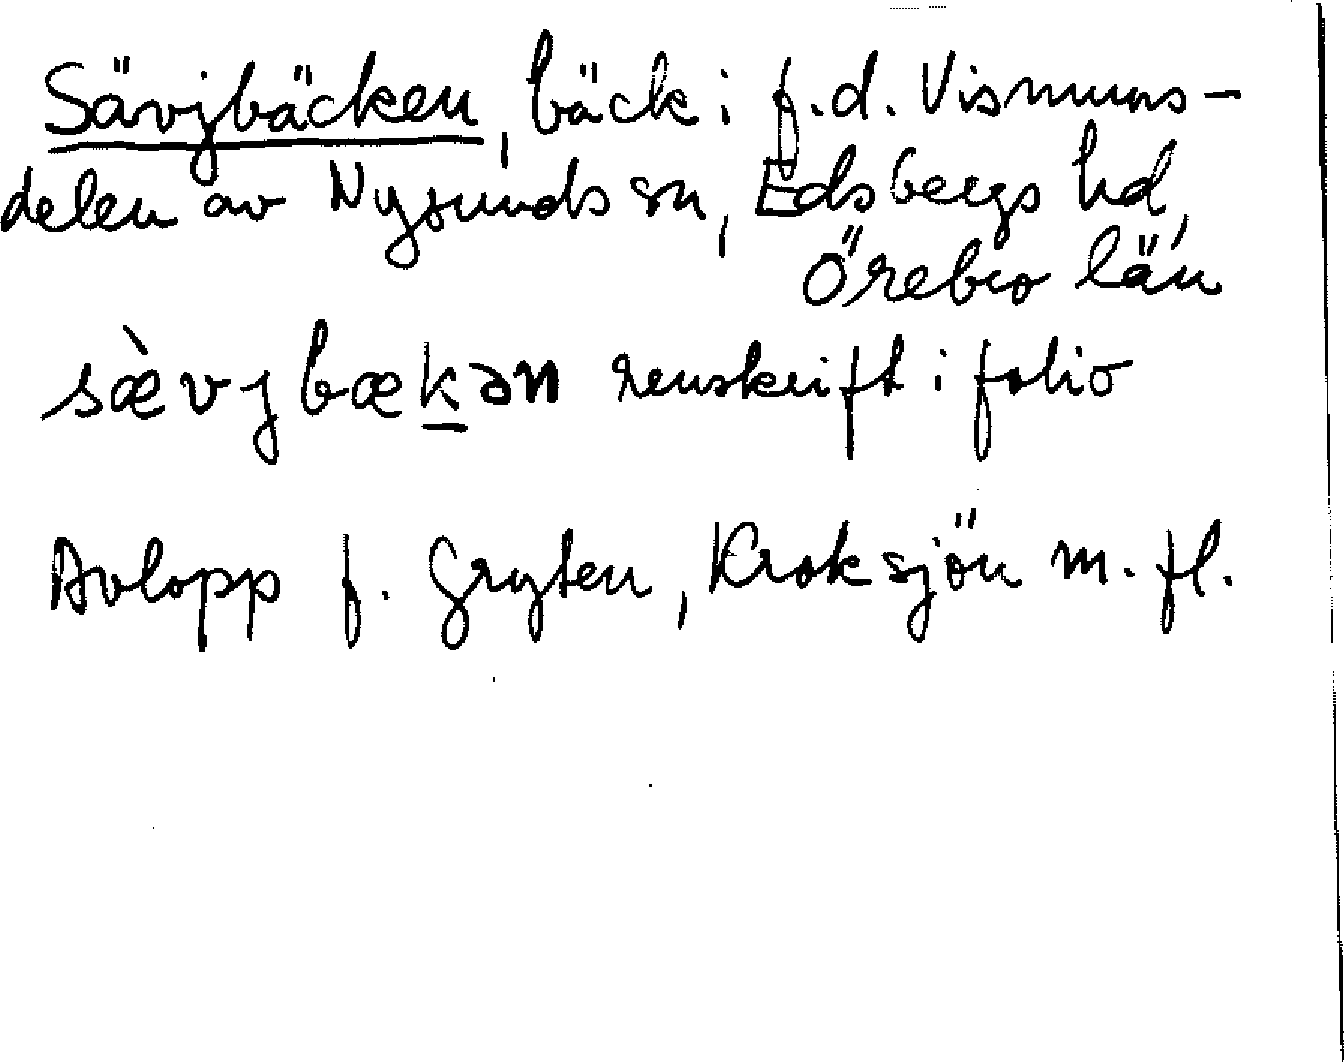 Sävjbäcken, bäck i f.d. Vismums-
delen av Nysunds sn, Edsbergs hd,
Örebro län
sæ̀vjbæk̲ən renskrift i folio
Avlopp f. Gryten, Kroksjön m. fl.